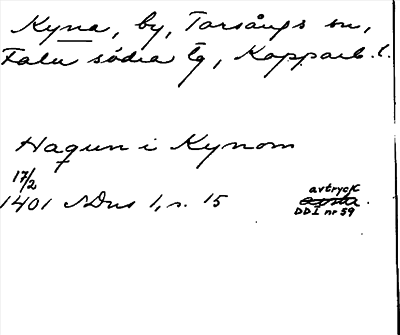 Kyna, by, Torsångs sn,
Falu södra tg, Kopparb. l.
Haqun i Kynom
17/2
1401 NDns 1, s. 15
avtryck
DD1 nr 59